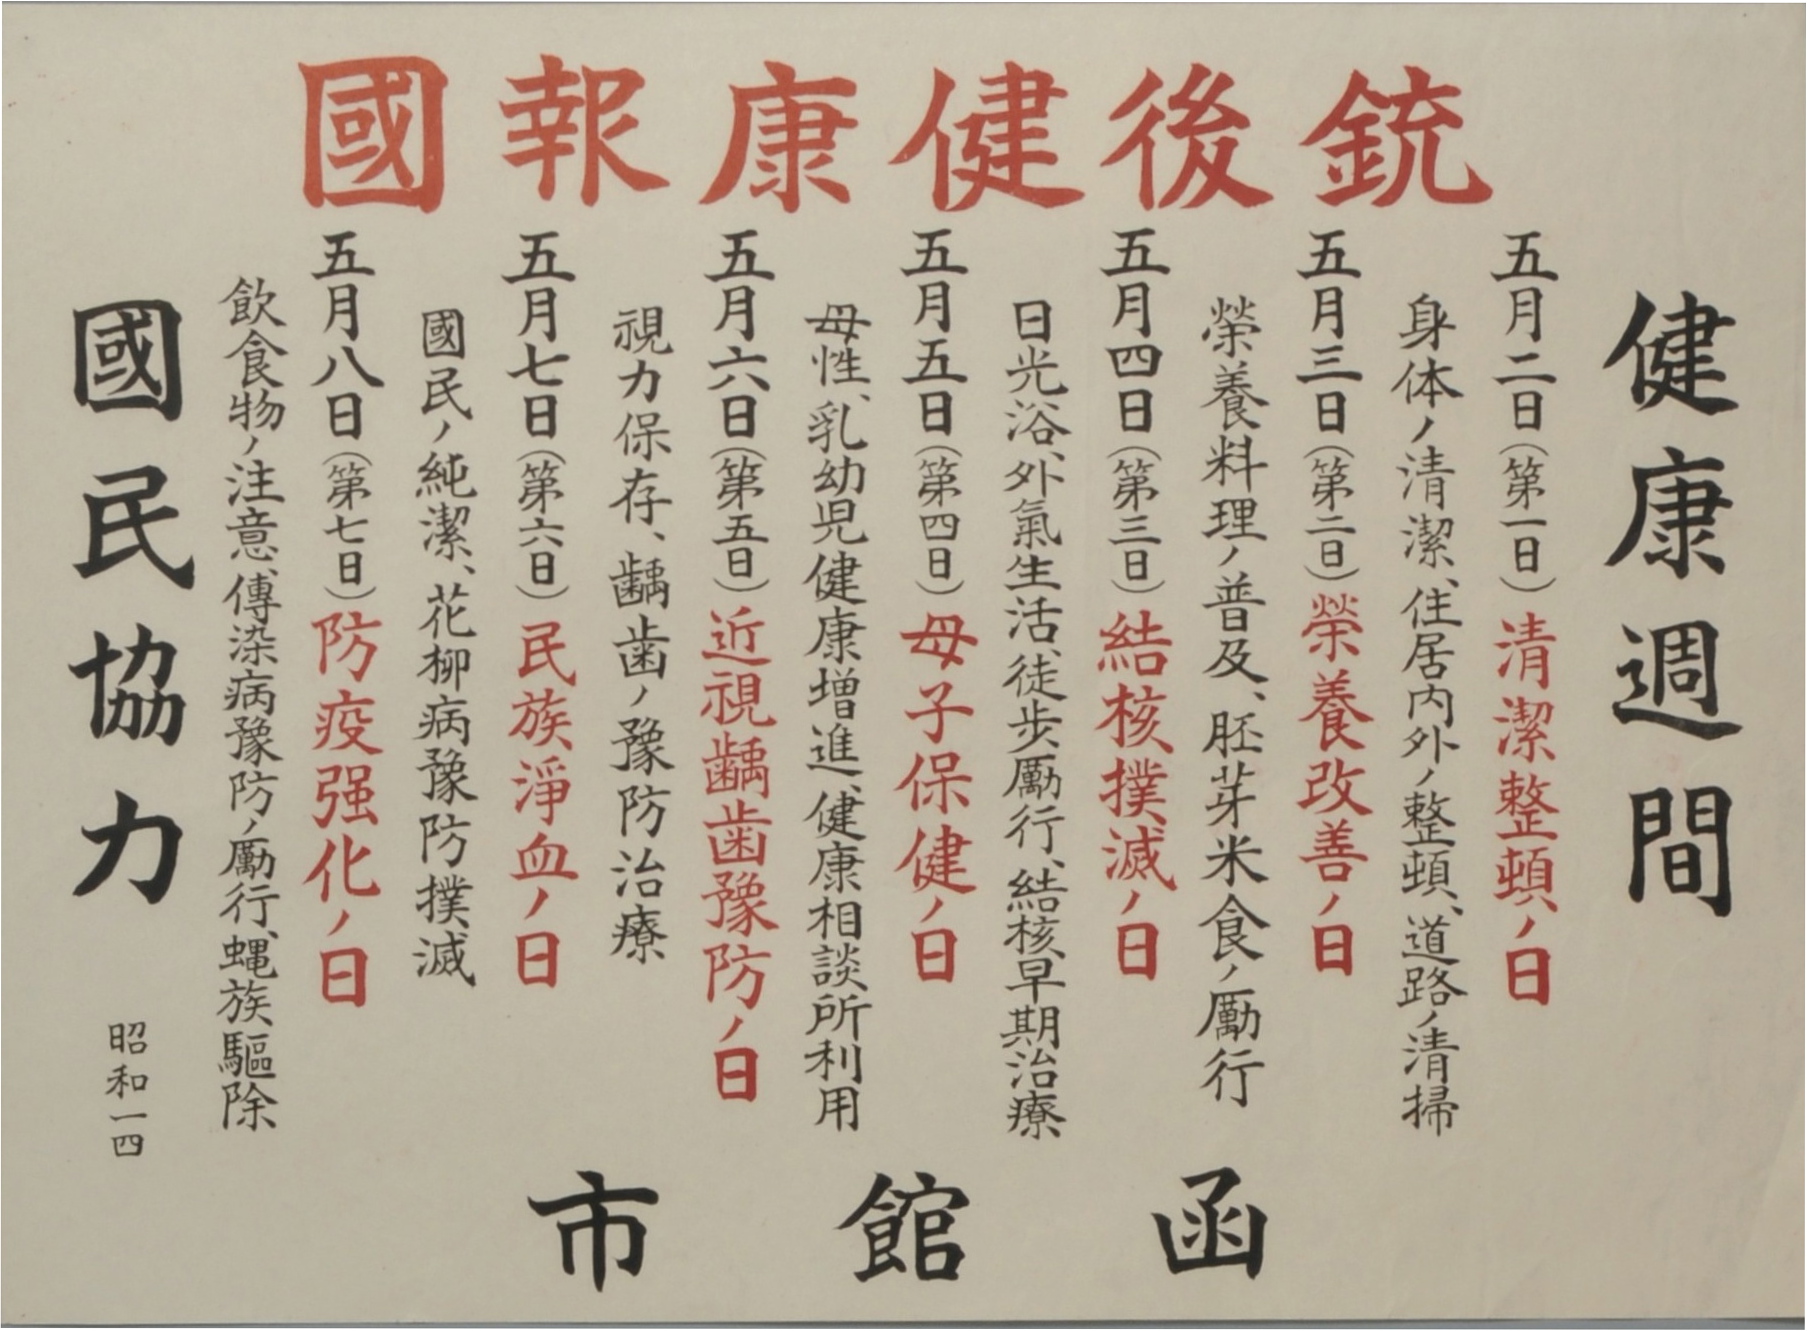 銃後健康報國
健康週間
五月二日(第一日)清潔整頓ノ日
身体ノ清潔、住居内外ノ整頓、道路ノ清掃
五月三日(第二日)榮養改善ノ日
榮養料理ノ普及、胚芽米食ノ勵行
五月四日(第三日)結核撲滅ノ日
日光浴、外氣生活、徒歩勵行、結核早期治療
五月五日(第四日)母子保健ノ日
母性、乳幼児健康増進、健康相談所利用
五月六日(第五日)近視齲歯豫防ノ日
視力保存、齲歯ノ豫防治療
五月七日(第六日)民族淨血ノ日
國民ノ純潔、花柳病豫防撲滅
五月八日(第七日)防疫强化ノ日
飲食物ノ注意、傳染病豫防ノ勵行、蝿族驅除
國民協力
昭和一四
函館市